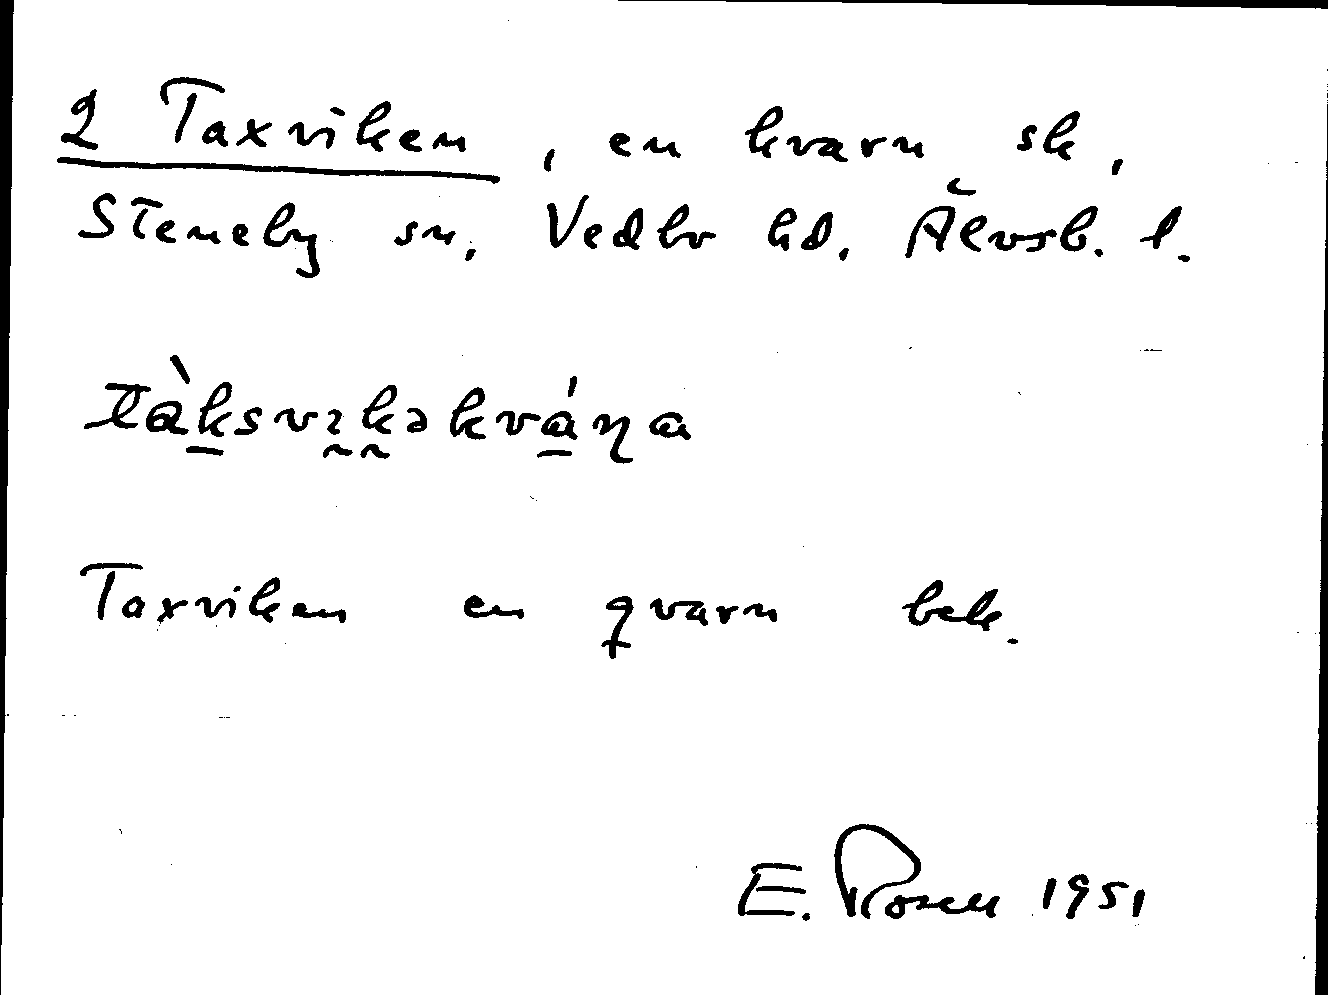 2 Taxviken, en kvarn sk,
Steneby sn, Vedbo hd. Älvsb. l.
tàksvɩkəkváɳa
Taxviken en qvarn bek.
E. Rosell 1951